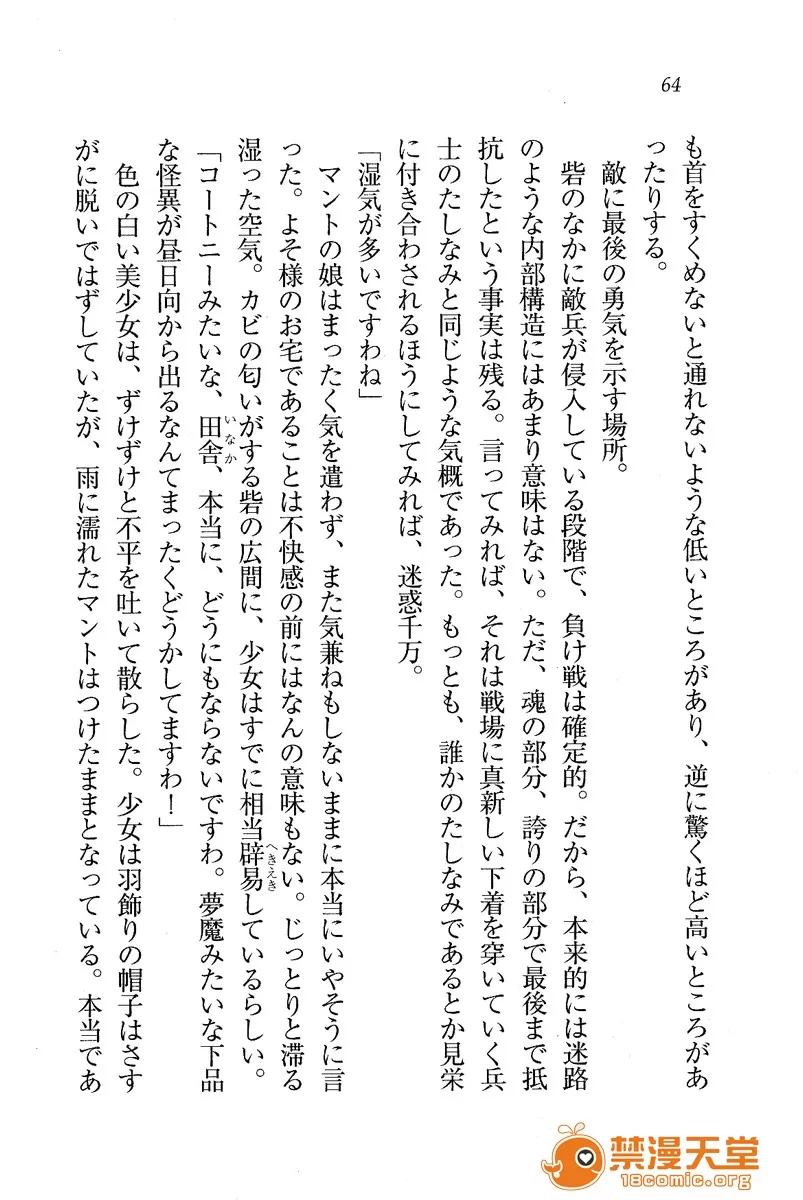 64
も首をすくめないと通れないような低いところがあり、逆に驚くほど高いところがあ
ったりする。
敵に最後の勇気を示す場所。
砦のなかに敵兵が侵入している段階で、負け戦は確定的。だから、本来的には迷路
のような内部構造にはあまり意味はない。ただ、魂の部分、誇りの部分で最後まで抵
抗したという事実は残る。言ってみれば、それは戦場に真新しい下着を穿いていく兵
士のたしなみと同じような気概であった。もっとも、誰かのたしなみであるとか見栄
に付き合わされるほうにしてみれば、迷惑千万。
「湿気が多いですわね」
マントの娘はまったく気を遣わず、また気兼ねもしないままに本当にいやそうに言
った。よそ様のお宅であることは不快感の前にはなんの意味もない。じっとりと滞る
湿った空気。カビの匂いがする砦の広間に、少女はすでに相当辟易しているらしい。
へきえき
「コートニーみたいな、田舎、本当に、どうにもならないですわ。夢魔みたいな下品
いなか
な怪異が昼日向から出るなんてまったくどうかしてますわ！」
色の白い美少女は、ずけずけと不平を吐いて散らした。少女は羽飾りの帽子はさす
がに脱いではずしていたが、雨に濡れたマントはつけたままとなっている。本当であ
禁漫天堂
18comic.org